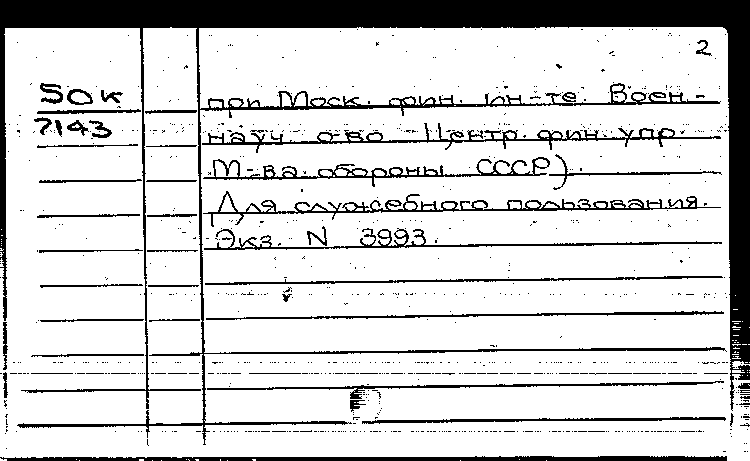 2
50к
7143
при Моск. фин. ин-те. Воен.-
науч. о-во Центр. фин. упр.
М-ва обороны СССР).
Для служебного пользования.
Экз. N 3993.